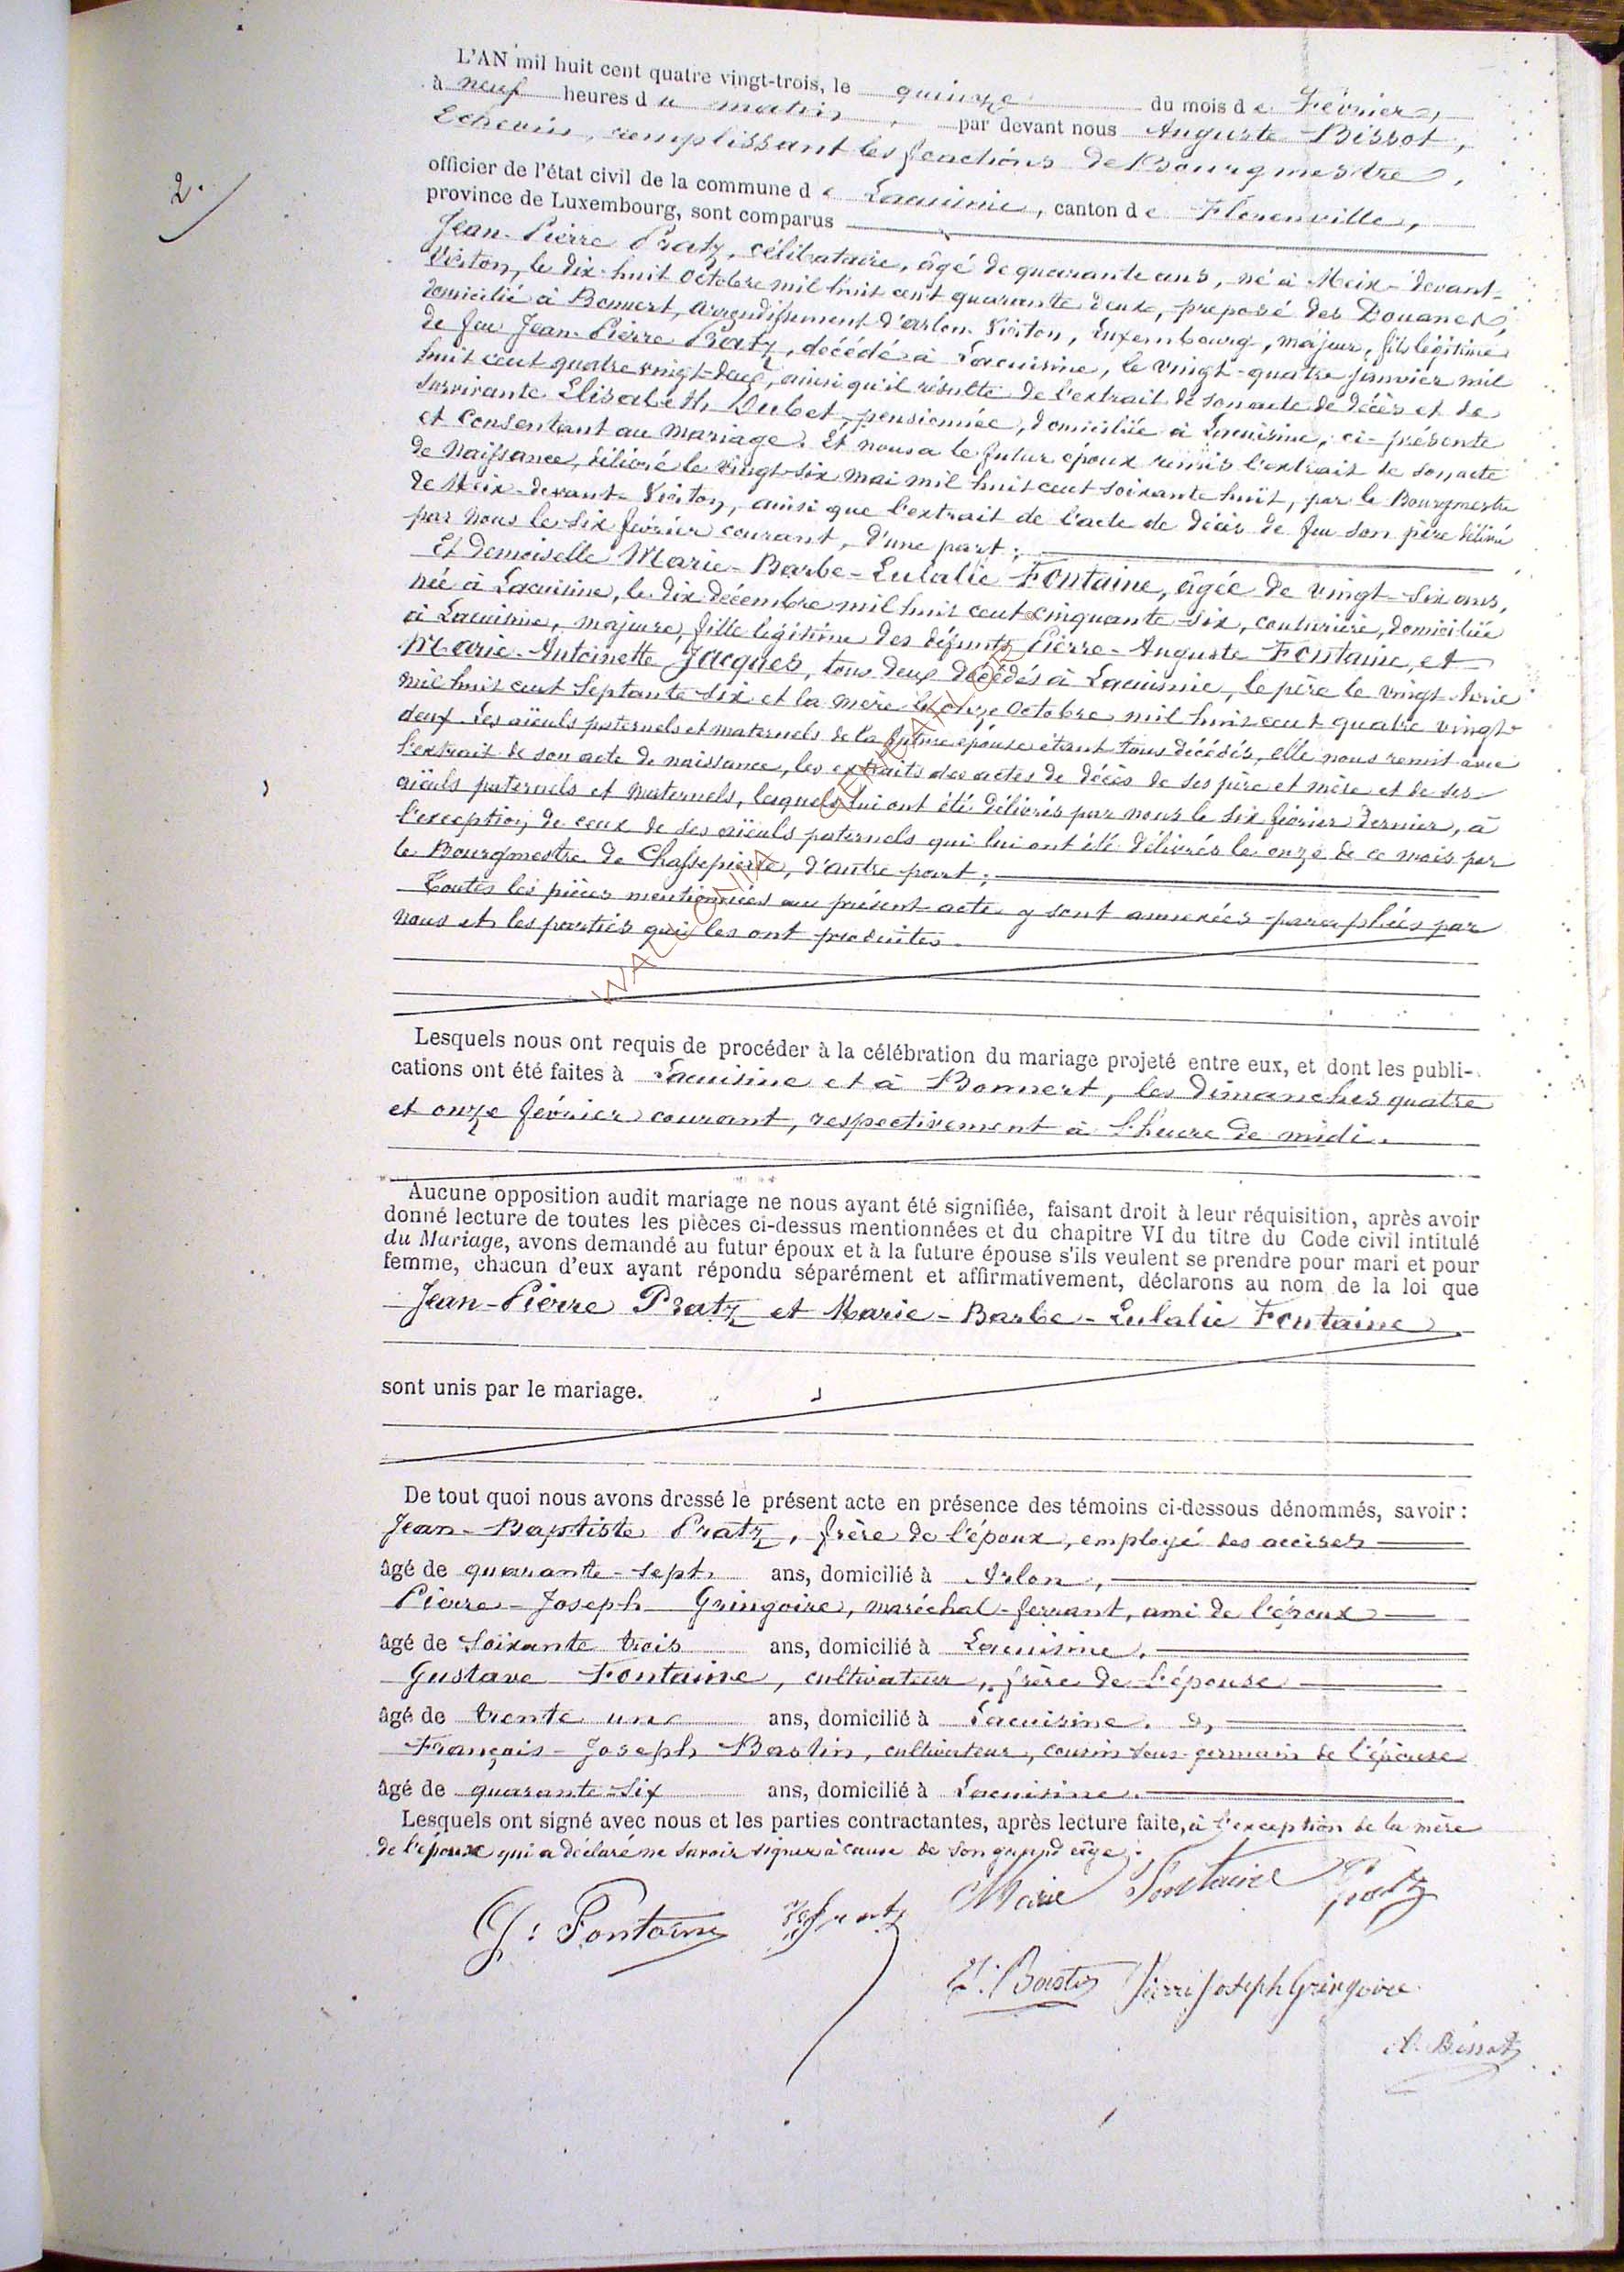 L'AN mil huit cent quatre vingt-trois, le quinze du mois de Février,
à neuf heures du matin, par devant nous Auguste Bissot,
Echevin, remplissant les fonctions de Bourgmestre,
officier de l'état civil de la commune de Lacuisine, canton de Florenville,
province de Luxembourg, sont comparus
2.
Jean-Pierre Pratz, célibataire, âgé de quarante ans, né à Meix-devant-
Virton, le dix-huit Octobre mil huit cent quarante deux, préposé des Douanes,
domicilié à Bonnert, arrondissement d'Arlon-Virton, Luxembourg, majeur, fils légitime
de feu Jean-Pierre Pratz, décédé à Lacuisine, le vingt-quatre janvier mil
huit cent quatre vingt-deux, ainsi qu'il résulte de l'extrait de son acte de décès et de
survivante Elisabeth Dubet, pensionnée, domiciliée à Lacuisine, ci-présente
et consentant au mariage. Et nous a le futur époux remis l'extrait de son acte
de Naissance, délivré le vingt-six mai mil huit cent soixante huit, par le Bourgmestre
de Meix-devant-Virton, ainsi que l'extrait de l'acte de décès de feu son père délivré
par nous le six février courant, d'une part;
Et demoiselle Marie-Barbe-Eulalie Fontaine, âgée de vingt-six ans,
née à Lacuisine, le dix décembre mil huit cent cinquante-six, couturière, domiciliée
à Lacuisine, majeure, fille légitime des défunts Pierre-Auguste Fontaine, et
Marie-Antoinette Jacques, tous deux décédés à Lacuisine, le père le vingt
mil huit cent septante-six et la mère le onze Octobre mil huit cent quatre vingt-
deux. Les aïeuls paternels et maternels de la future épouse étant tous décédés, elle nous remit avec
l'extrait de son acte de naissance, les extraits des actes de décès de ses père et mère et de ses
aïeuls paternels et maternels, lesquels lui ont été délivrés par nous le six février dernier, à
l'exception de ceux de ses aïeuls paternels qui lui ont été délivrés le onze de ce mois par
le Bourgmestre de Chassepierre, d'autre part;
Toutes les pièces mentionnées au présent acte y sont annexées paraphées par
nous et les parties qui les ont produites.
Lesquels nous ont requis de procéder à la célébration du mariage projeté entre eux, et dont les publi-
cations ont été faites à Lacuisine et à Bonnert, les dimanches quatre
et onze février courant, respectivement à l'heure de midi.
Aucune opposition audit mariage ne nous ayant été signifiée, faisant droit à leur réquisition, après avoir
donné lecture de toutes les pièces ci-dessus mentionnées et du chapitre VI du titre du Code civil intitulé
du Mariage, avons demandé au futur époux et à la future épouse s'ils veulent se prendre pour mari et pour
femme, chacun d'eux ayant répondu séparément et affirmativement, déclarons au nom de la loi que
Jean-Pierre Pratz et Marie-Barbe-Eulalie Fontaine
sont unis par le mariage.
De tout quoi nous avons dressé le présent acte en présence des témoins ci-dessous dénommés, savoir :
Jean-Baptiste Pratz, frère de l'époux, employé des accises
âgé de quarante-sept ans, domicilié à Arlon,
Pierre-Joseph Gringoire, maréchal-ferrant, ami de l'époux
âgé de soixante trois ans, domicilié à Lacuisine.
Gustave Fontaine, cultivateur, frère de l'épouse
âgé de trente un ans, domicilié à Lacuisine.
François-Joseph Bastin, cultivateur, cousin sous-germain de l'épouse
âgé de quarante-six ans, domicilié à Lacuisine.
Lesquels ont signé avec nous et les parties contractantes, après lecture faite, à l'exception de la mère
de l'époux qui a déclaré ne savoir signer à cause de son grand âge.
G. Fontaine Marie Fontaine Pratz
Bastin Pierre Joseph Gringoire
A. Bissot